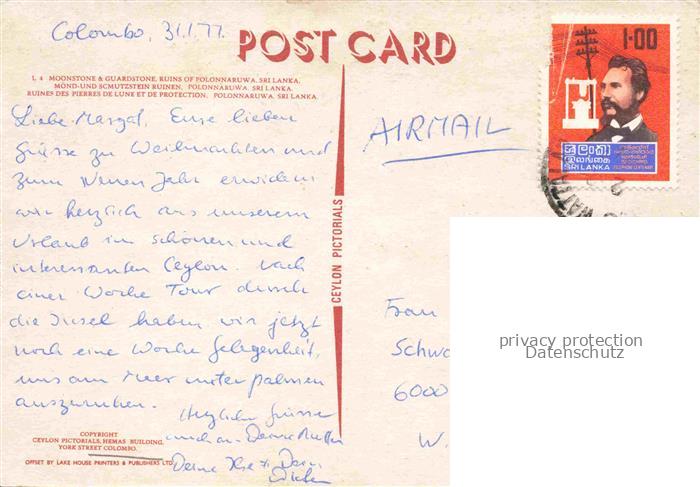 Colombo, 31.1.77.
POST CARD
L 4 MOONSTONE & GUARDSTONE, RUINS OF POLONNARUWA, SRI LANKA.
MÖND-UND SCHMUTZSTEIN RUINEN, POLONNARUWA, SRI LANKA.
RUINES DES PIERRES DE LUNE ET DE PROTECTION, POLONNARUWA, SRI LANKA.
Liebe Margot, Eure lieben
Grüsse zu Weihnachten und
zum Neuen Jahr erwidern
wir herzlich aus unserem
Urlaub im schönen und
interessanten Ceylon. Nach
einer Woche Tour durch
die Insel haben wir jetzt
noch eine Woche Gelegenheit,
uns am Meer unter Palmen
auszuruhen.
Herzliche Grüsse
auch an Deine Mutter
Deine Ilse + Dein
COPYRIGHT
CEYLON PICTORIALS, HEMAS BUILDING,
YORK STREET COLOMBO.
OFFSET BY LAKE HOUSE PRINTERS & PUBLISHERS LTD
CEYLON PICTORIALS
AIRMAIL
1·00
ශ්‍රී ලංකා
இலங்கை
SRI LANKA
Frau
Schwa
6000
W.
privacy protection
Datenschutz